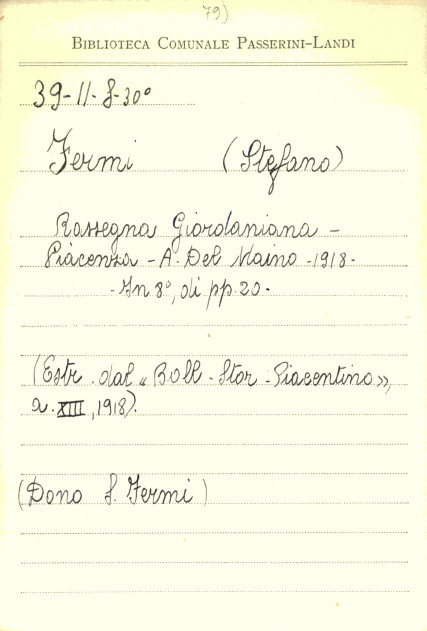 79)
BIBLIOTECA COMUNALE PASSERINI-LANDI
39-11-f-30°
Fermi (Stefano)
Rassegna Giordaniana -
Piacenza - A. Del Maino - 1918 -
- In 8°, di pp. 20 -
(Estr. dal « Boll. Stor. Piacentino »,
a. XIII, 1918).
(Dono S. Fermi)